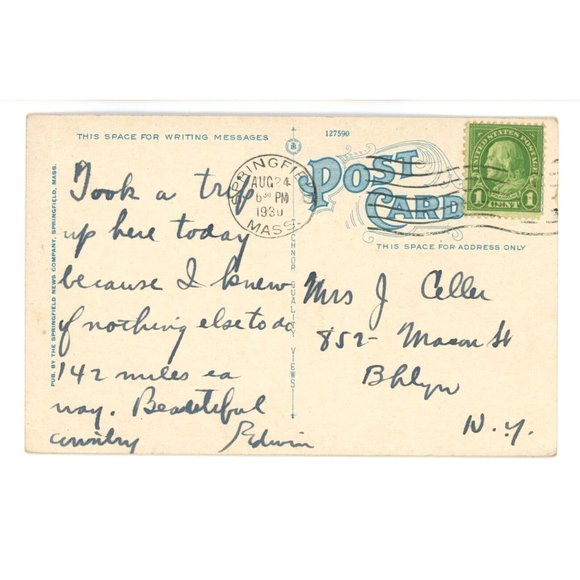 THIS SPACE FOR WRITING MESSAGES
127590
POST CARD
THIS SPACE FOR ADDRESS ONLY
UNITED STATES POSTAGE
1 CENT 1
SPRINGFIELD
AUG 24
6 30 PM
1930
MASS.
PUB. BY THE SPRINGFIELD NEWS COMPANY, SPRINGFIELD, MASS.
QUALITY VIEWS
Took a trip
up here today
because I knew
of nothing else to do
142 miles ea
way. Beautiful
country Edwin
Mrs J Celler
852- Macon St
Bklyn
N.Y.